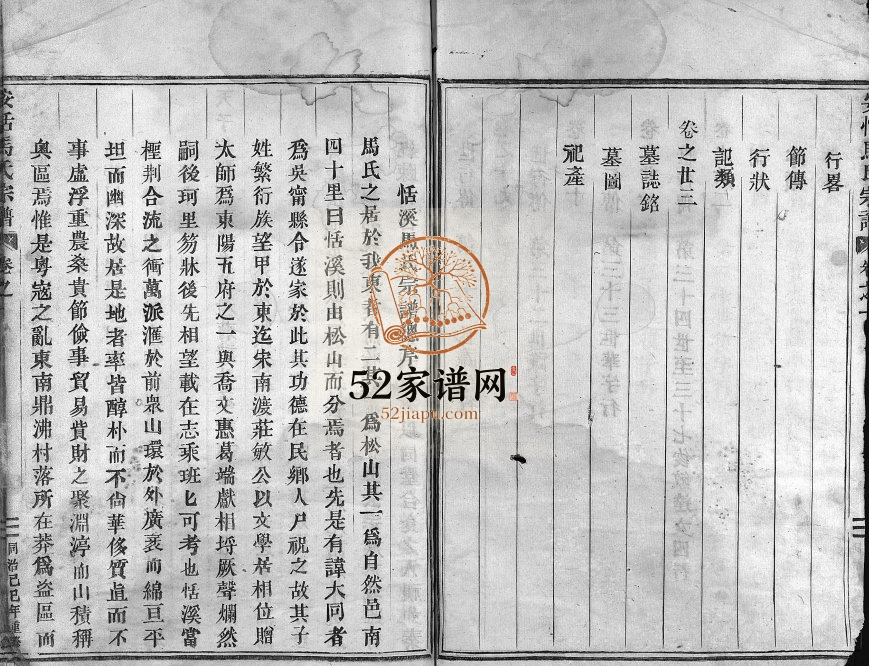 行畧
節傳
行狀
記類
卷之廿三
墓誌銘
墓圖
祀產
恬溪馬氏宗譜總序
馬氏之居於我東者有二其一為松山其一為自然邑南
四十里曰恬溪則由松山而分焉者也先是有諱大同者
為吳甯縣令遂家於此其功德在民鄉人尸祝之故其子
姓繁衍族望甲於東迄宋南渡莊敏公以文學居相位贈
太師為東陽五府之一與喬文惠葛端獻相埒厥聲爛然
嗣後珂里笏牀後先相望載在志乘班匕可考也恬溪當
檉荆合流之衝萬派滙於前衆山環於外廣袤而綿亘平
坦而幽深故居是地者率皆醇朴而不尙華侈質直而不
事虛浮重農桑貴節儉事貿易貲財之聚淵渟而山積稱
奥區焉惟是粤寇之亂東南鼎沸村落所在莽為盜區而
馬氏宗譜
卷之一
同治己巳年重修
52家谱网
52jiapu.com